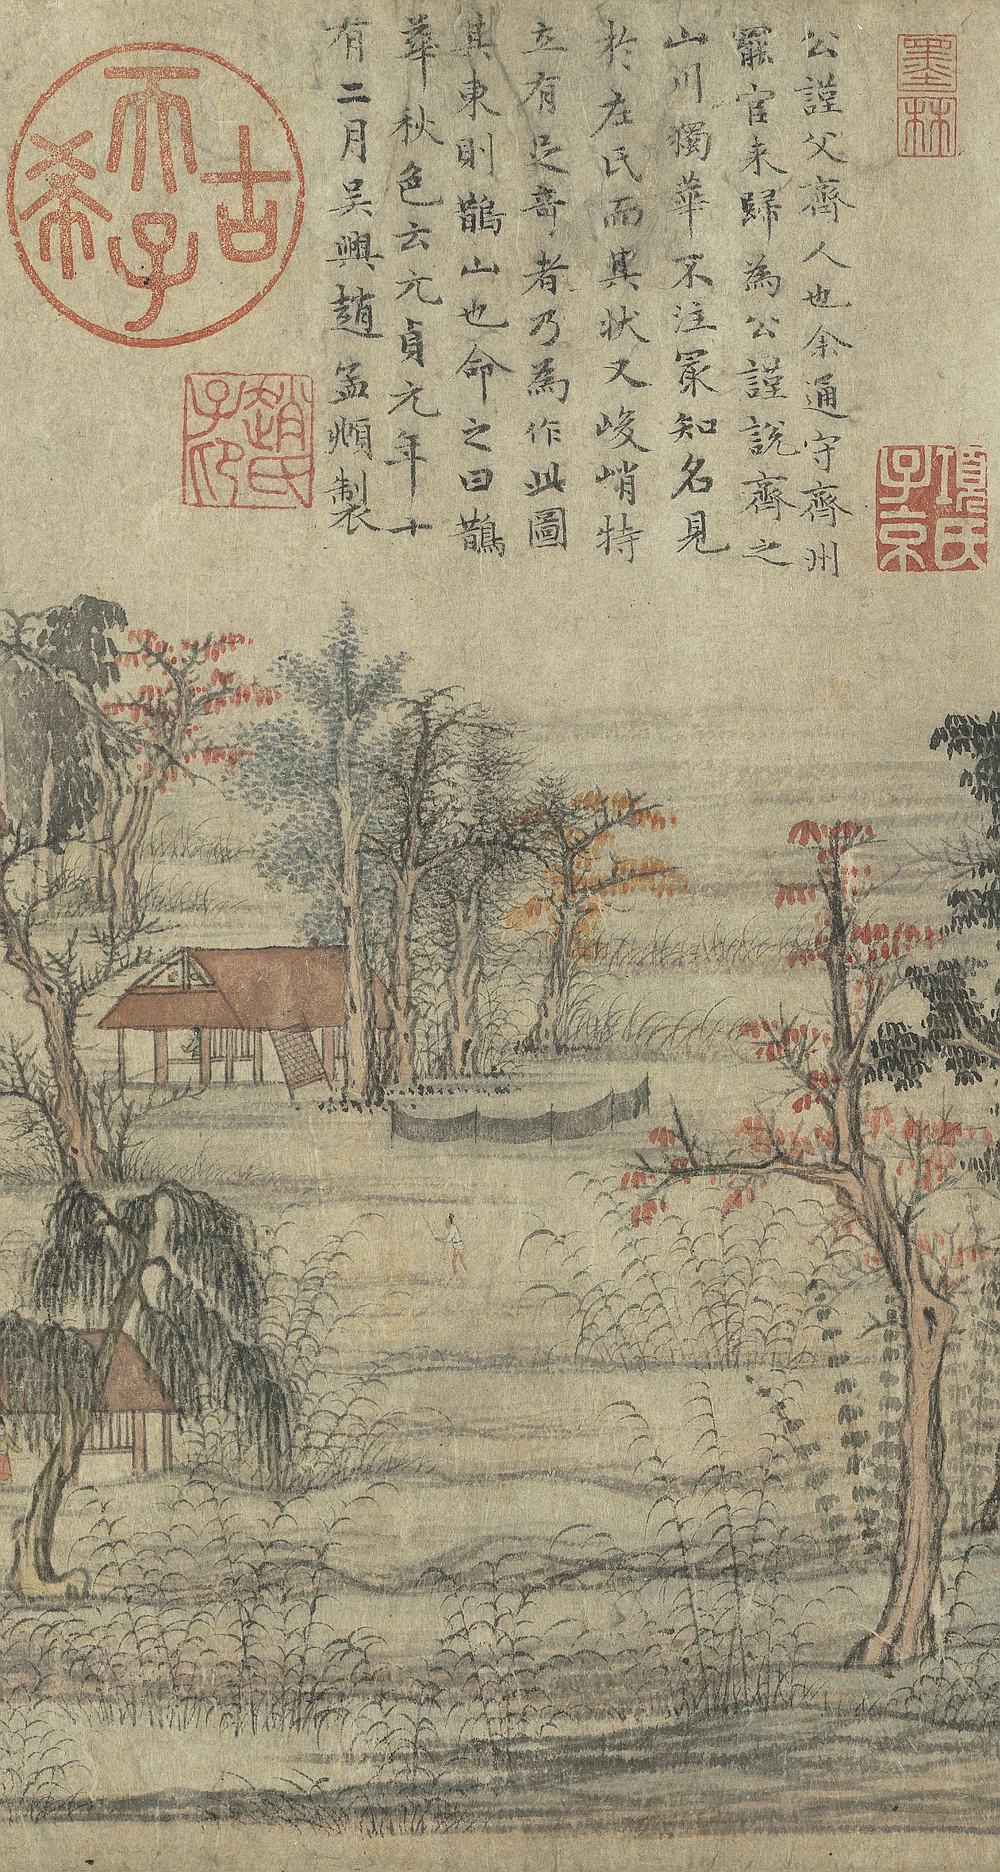 公謹父齊人也余通守齊州
罷官来歸為公謹說齊之
山川獨華不注冣知名見
於左氏而其状又峻峭特
立有足奇者乃為作此圖
其東則鵲山也命之曰鵲
華秋色云元貞元年十
有二月吳興趙孟頫製
墨林
項氏子京
古希天子
趙氏子印